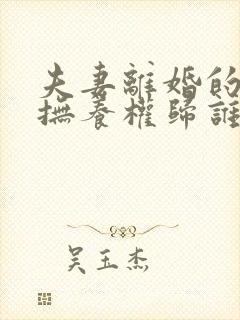 夫妻離婚的
撫養權歸誰
吳玉杰